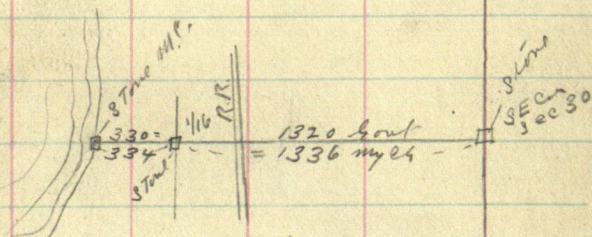 Stone M.C.
330 =
334
Stone
1/16
R.R.
1320 Gout
= 1336 my ch
Stone
SE Cor
Sec 30